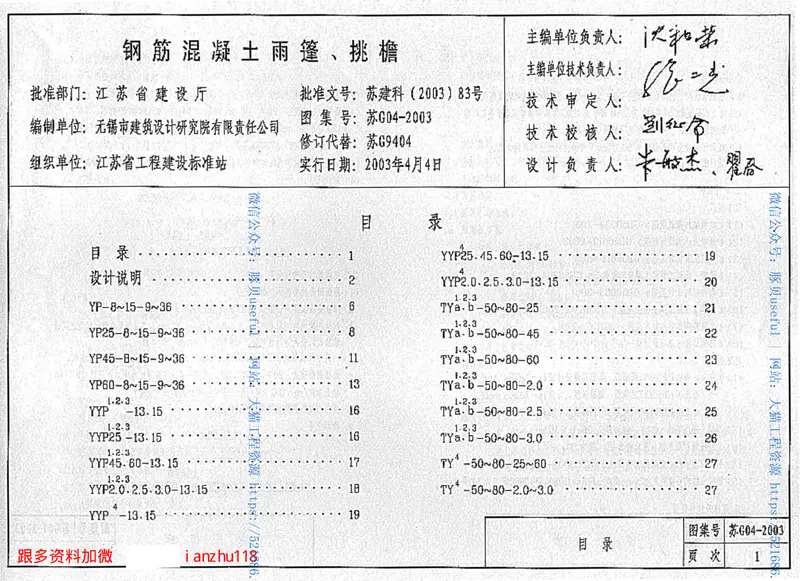 钢筋混凝土雨篷、挑檐
批准部门：江苏省建设厅
编制单位：无锡市建筑设计研究院有限责任公司
组织单位：江苏省工程建设标准站
批准文号：苏建科（2003）83号
图集号：苏G04-2003
修订代替：苏G9404
实行日期：2003年4月4日
主编单位负责人：
主编单位技术负责人：
技术审定人：
技术校核人：
设计负责人：
目录
目录 1
设计说明 2
YP-8~15-9~36 6
YP25-8~15-9~36 8
YP45-8~15-9~36 11
YP60-8~15-9~36 13
YYP1.2.3-13.15 16
YYP25 1.2.3-13.15 16
YYP45.60 1.2.3-13.15 17
YYP2.0.2.5.3.0 1.2.3-13.15 18
YYP4-13.15 19
YYP25.45.60 4-13.15 19
YYP2.0.2.5.3.0 4-13.15 20
TYa.b 1.2.3-50~80-25 21
TYa.b 1.2.3-50~80-45 22
TYa.b 1.2.3-50~80-60 23
TYa.b 1.2.3-50~80-2.0 24
TYa.b 1.2.3-50~80-2.5 25
TYa.b 1.2.3-50~80-3.0 26
TY4-50~80-25~60 27
TY4-50~80-2.0~3.0 27
目录
图集号 苏G04-2003
页次 1
跟多资料加微 ianzhu118
微信公众号：豚贝useful | 网站：大猫工程资源 https://521686.
微信公众号：豚贝useful | 网站：大猫工程资源 https://521686.